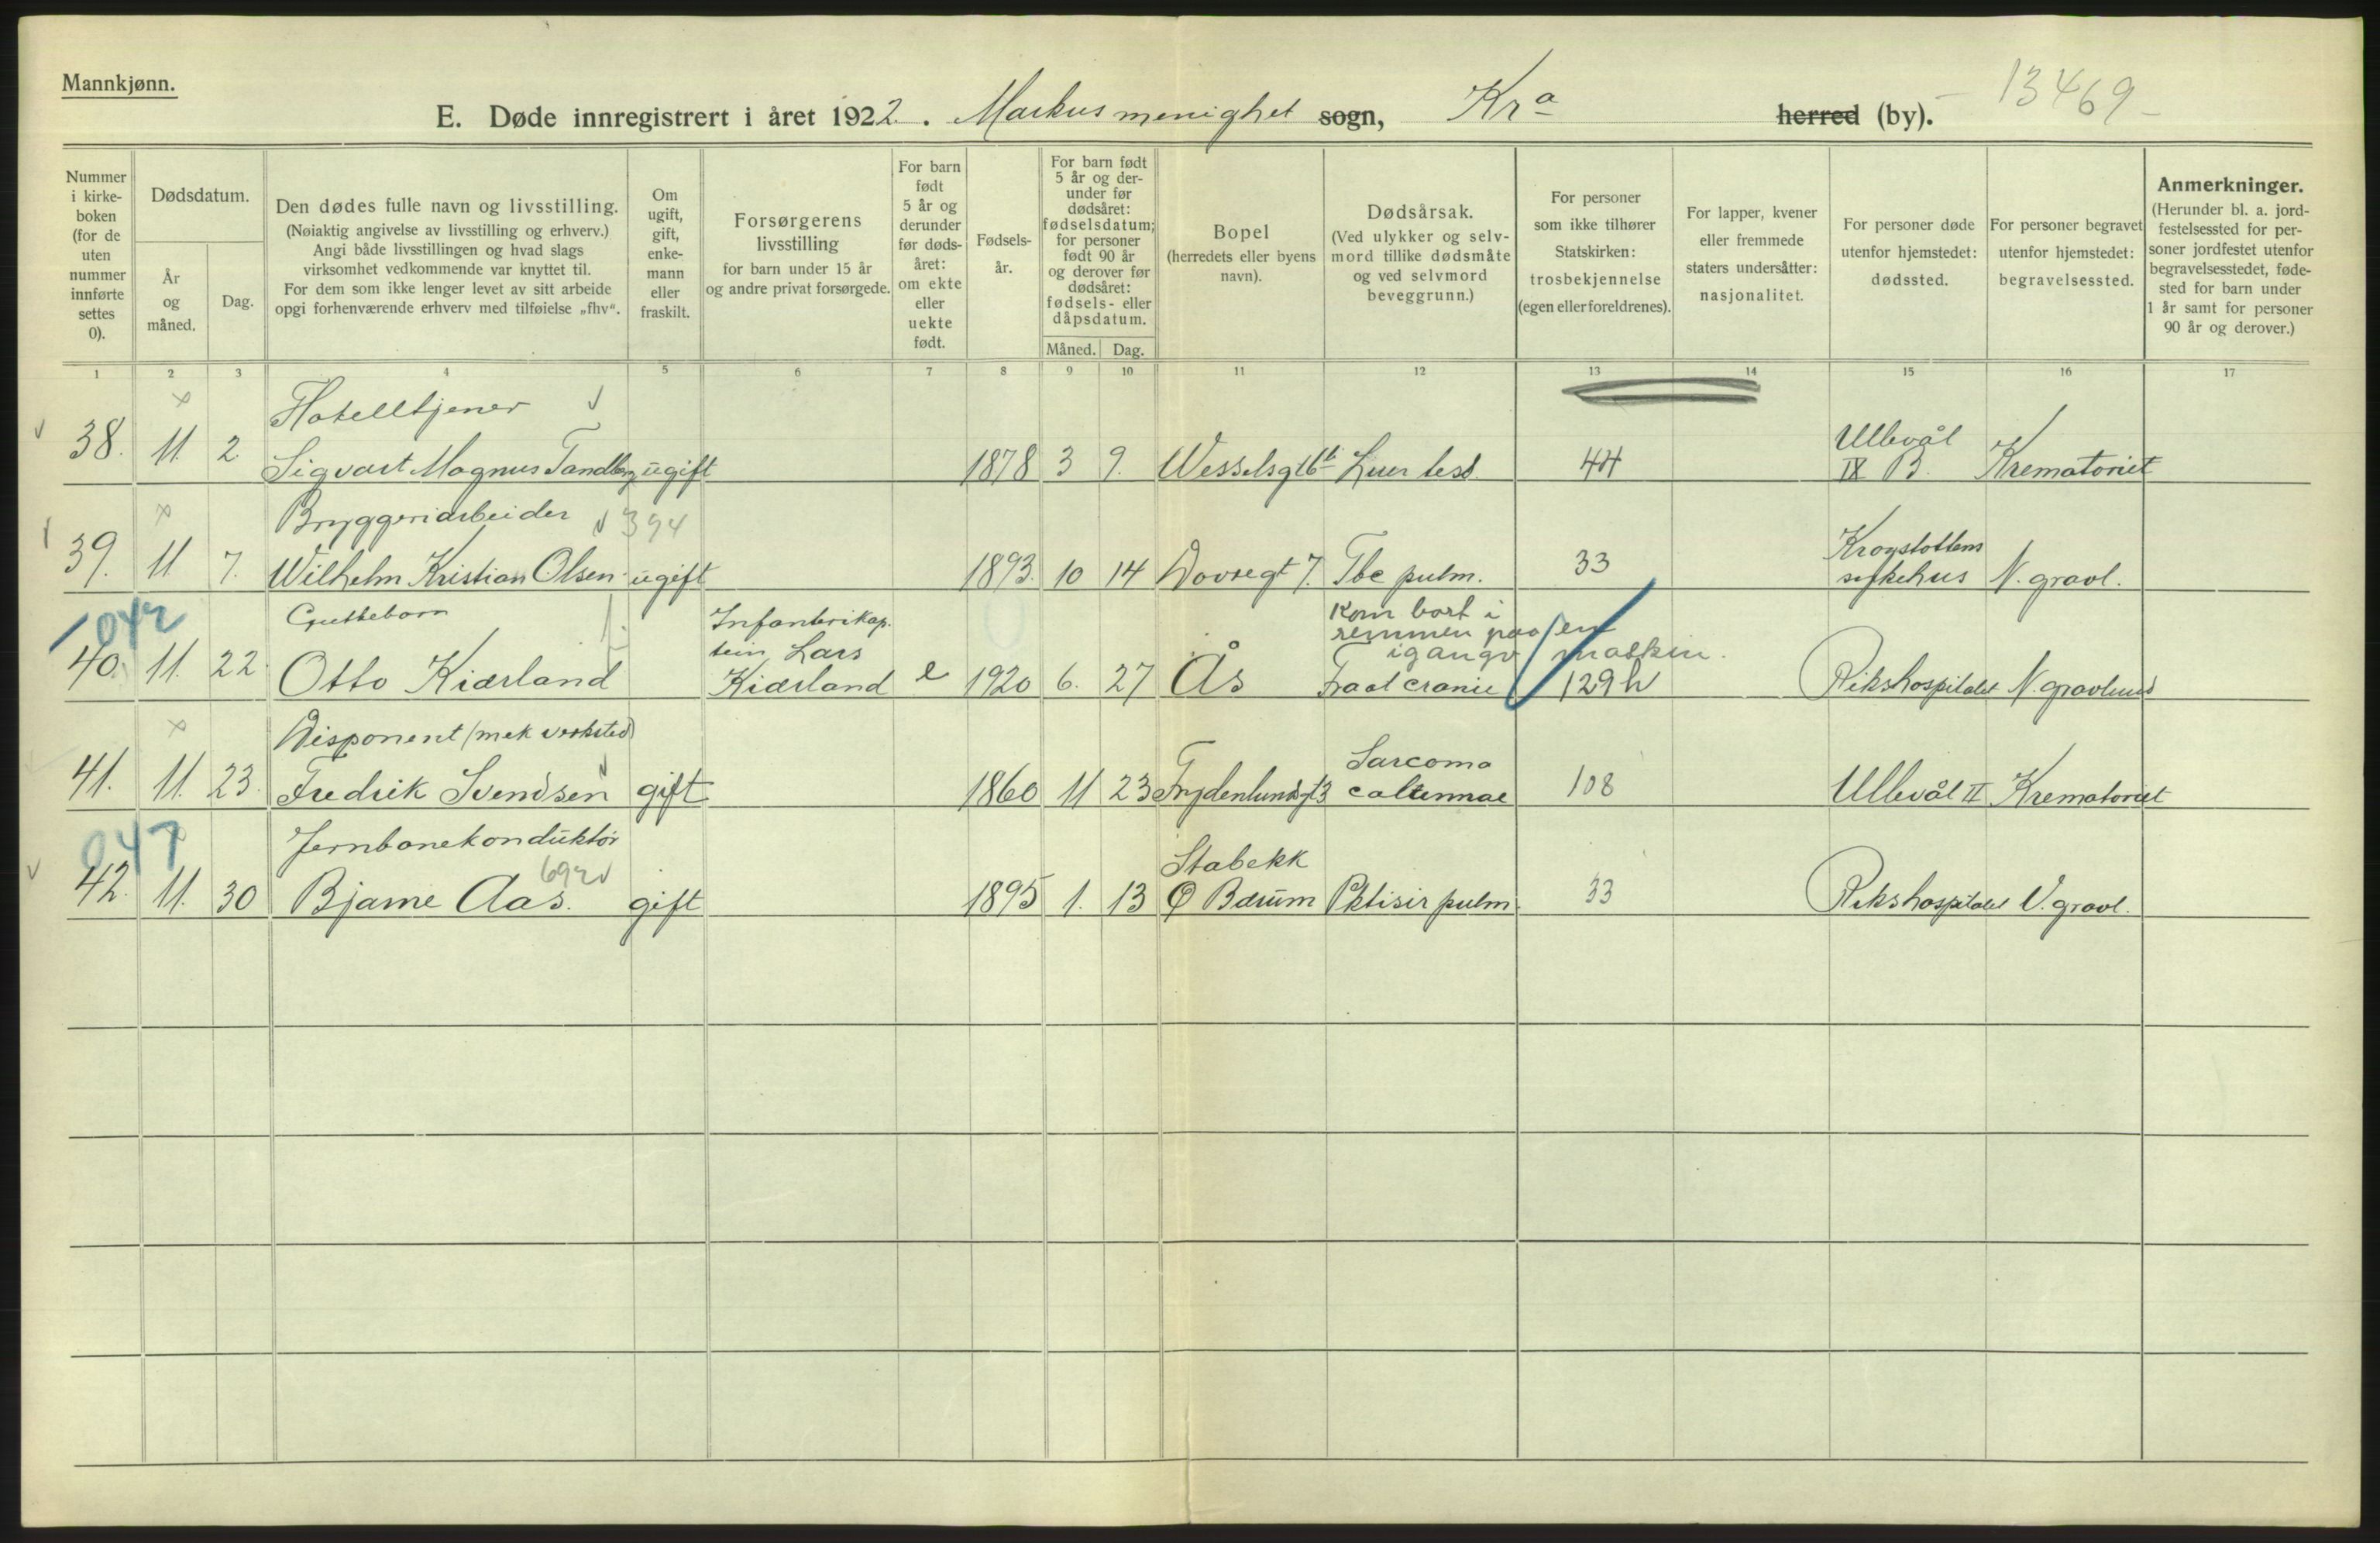 Mannkjønn.
13469
E. Døde innregistrert i året 1922. Markus menighet sogn, Kra herred (by).
Nummer i kirke- boken (for de uten nummer innførte settes 0).
Dødsdatum.
År og måned.
Dag.
Den dødes fulle navn og livsstilling.
(Nøiaktig angivelse av livsstilling og erhverv.)
Angi både livsstillingen og hvad slags
virksomhet vedkommende var knyttet til.
For dem som ikke lenger levet av sitt arbeide
opgi forhenværende erhverv med tilføielse „fhv“.
Om ugift, gift, enke- mann eller fraskilt.
Forsørgerens livsstilling
for barn under 15 år
og andre privat forsørgede.
For barn født 5 år og derunder før døds- året: om ekte eller uekte født.
Fødsels- år.
For barn født 5 år og der- under før dødsåret: fødselsdatum; for personer født 90 år og derover før dødsåret: fødsels- eller dåpsdatum.
Måned. Dag.
Bopel
(herredets eller byens navn).
Dødsårsak.
(Ved ulykker og selv- mord tillike dødsmåte og ved selvmord beveggrunn.)
For personer som ikke tilhører Statskirken: trosbekjennelse (egen eller foreldrenes).
For lapper, kvener eller fremmede staters undersåtter: nasjonalitet.
For personer døde utenfor hjemstedet: dødssted.
For personer begravet utenfor hjemstedet: begravelsessted.
Anmerkninger.
(Herunder bl. a. jord- festelsessted for per- soner jordfestet utenfor begravelsesstedet, føde- sted for barn under 1 år samt for personer 90 år og derover.)
1 2 3 4 5 6 7 8 9 10 11 12 13 14 15 16 17
Hotelltjener
Ullevål
38. 11. 2 Sigvart Magnus Tandberg ugift 1878 3 9. Wesselsgt 6 Luer tesd. 44 IX B. Krematoriet
Bryggeriarbeider 394
Krogstøttens
39. 11. 7. Wilhelm Kristian Olsen ugift 1893. 10 14 Dovregt 7. Tbc pulm. 33 sykehus N. gravl.
042
Guttebarn Infanterikap- Kom bort i
tein Lars remmen paa en
igangv maskin.
40. 11. 22. Otto Kiærland Kiærland e 1920 6. 27 Ås Fract cranie 129h Rikshospitalet N. gravlund
Disponent (mek verksted)
Sarcoma
41. 11. 23. Fredrik Svendsen gift 1860 11 23 Frydenlundsgt 3 108 Ullevål II Krematoriet
047
Jernbanekonduktör
692
Stabekk
42. 11. 30 Bjarne Aas. gift 1895 1. 13 Ø Bærum Phtisis pulm. 33 Rikshospitalet V. gravl.